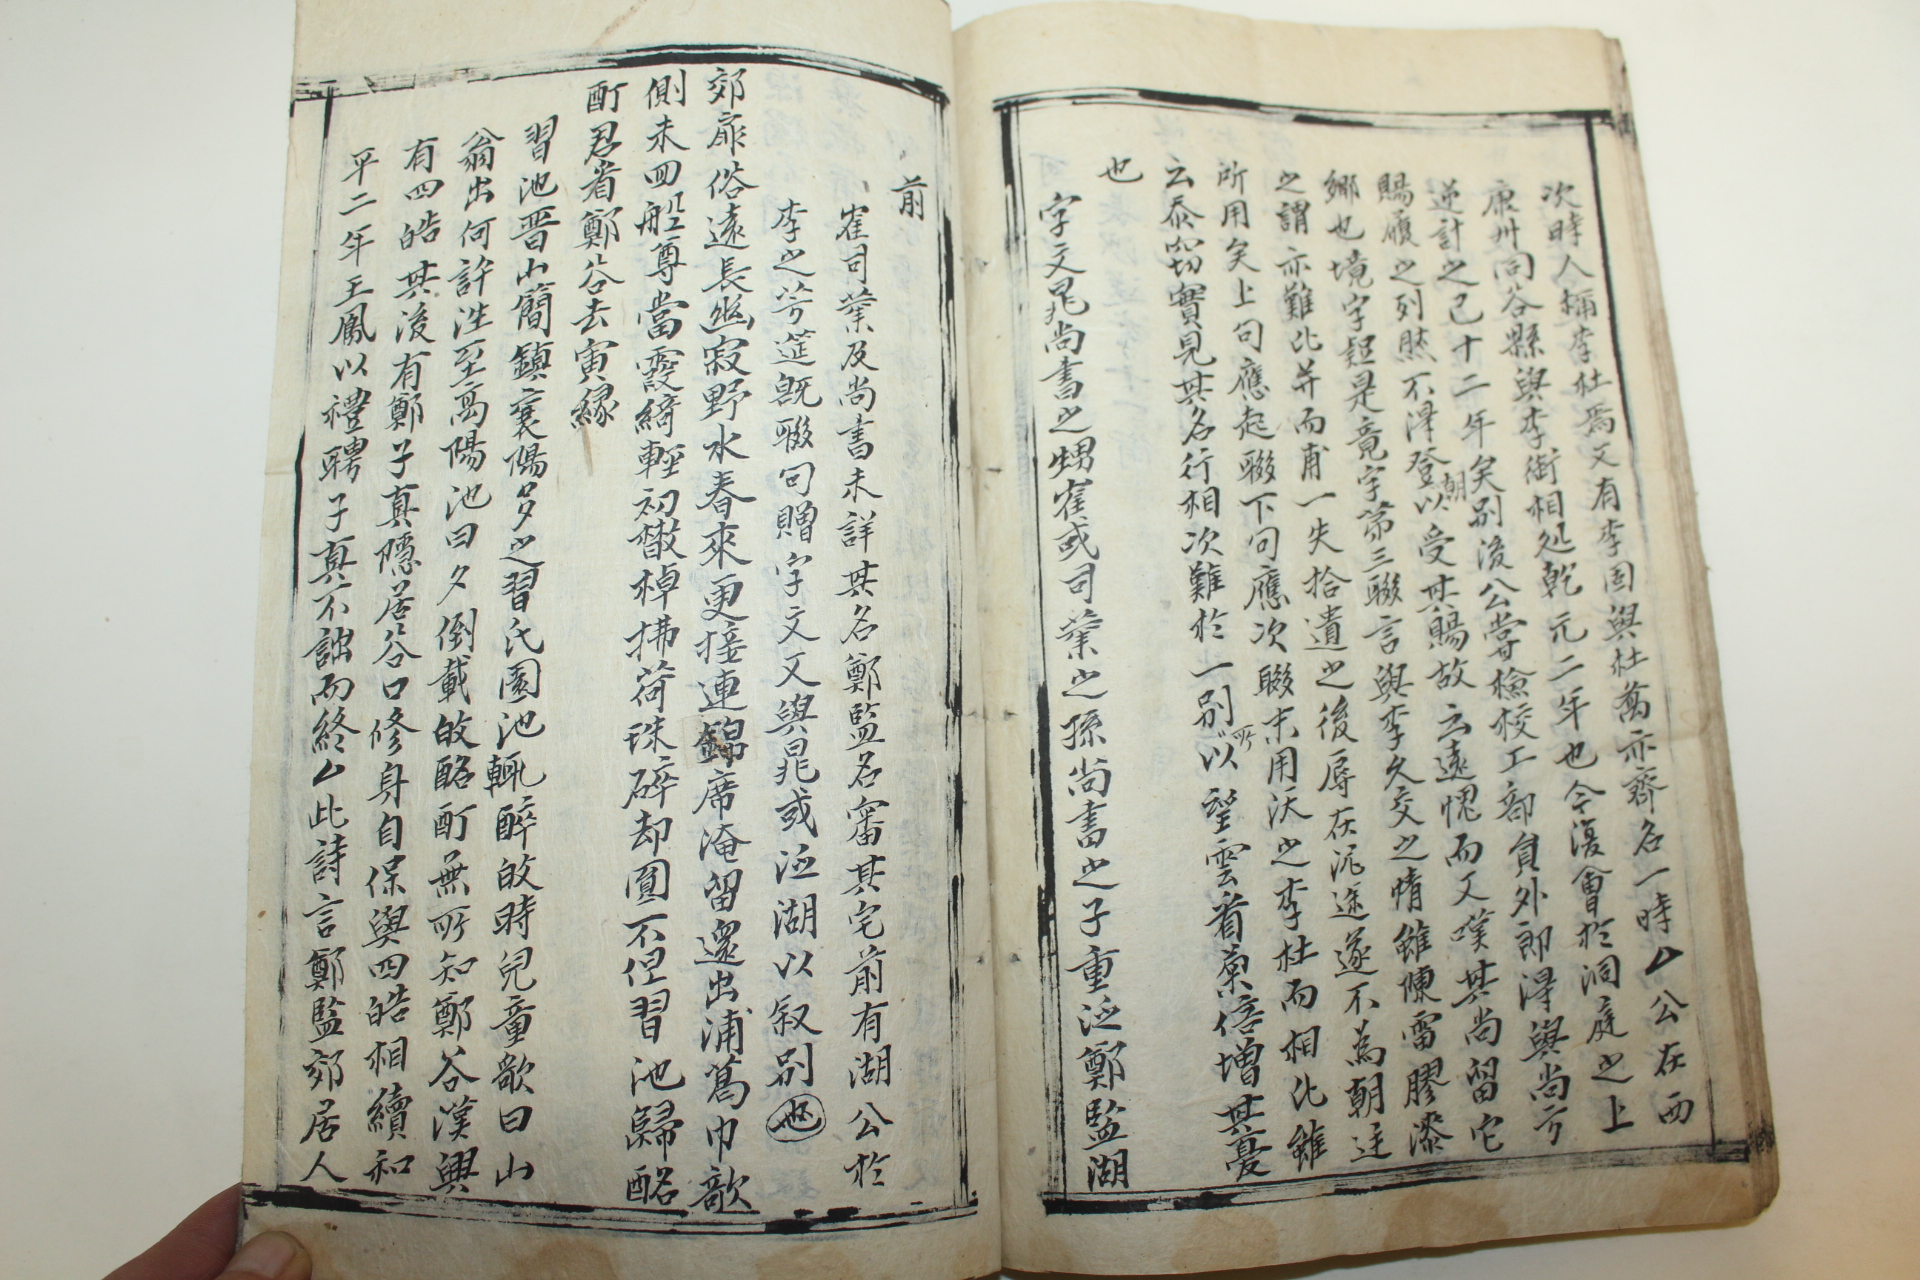 次時人稱李杜焉又有李固與杜喬亦齊名一時厶公在西
康州同谷縣與李銜相処乾元二年也今復會於洞庭之上
逆計之已十二年矣別後公嘗檢校工部負外郎得與尚方
賜履之列然不得登朝以受其賜故云遠愧而又嘆其尚留它
鄉也境字題是竟字第三聯言與李久交之情雖陳雷膠漆
之謂亦難比并而甫一失拾遺之後辱在泥途遂不為朝廷
所用矣上句應起聯下句應次聯末用沃之李杜而相比雖
云泰切實見其名行相次難於一別所以望雲看菓倍增其憂
也
字文晁尚書之甥崔彧司業之孫尚書之子重泛鄭監湖
前
崔司業及尚書未詳其名鄭監名審其宅前有湖公於
李之芳筵旣聯句贈字文又與晁彧泛湖以叙別也
郊扉俗遠長幽寂野水春來更接連錦席淹留還出浦葛巾欹
側未回船尊當霞綺輕初散棹拂荷珠碎却圓不但習池歸酩
酊君看鄭谷去寅緣
習池晋山簡鎮襄陽多之習氏園池輒醉故時兒童歌曰山
翁出何許泩至高陽池曰夕倒載故酩酊無所知鄭谷漢興
有四皓其後有鄭子真隱居谷口修身自保與四皓相續和
平二年王鳳以禮聘子真不詘而終厶此詩言鄭監郊居人